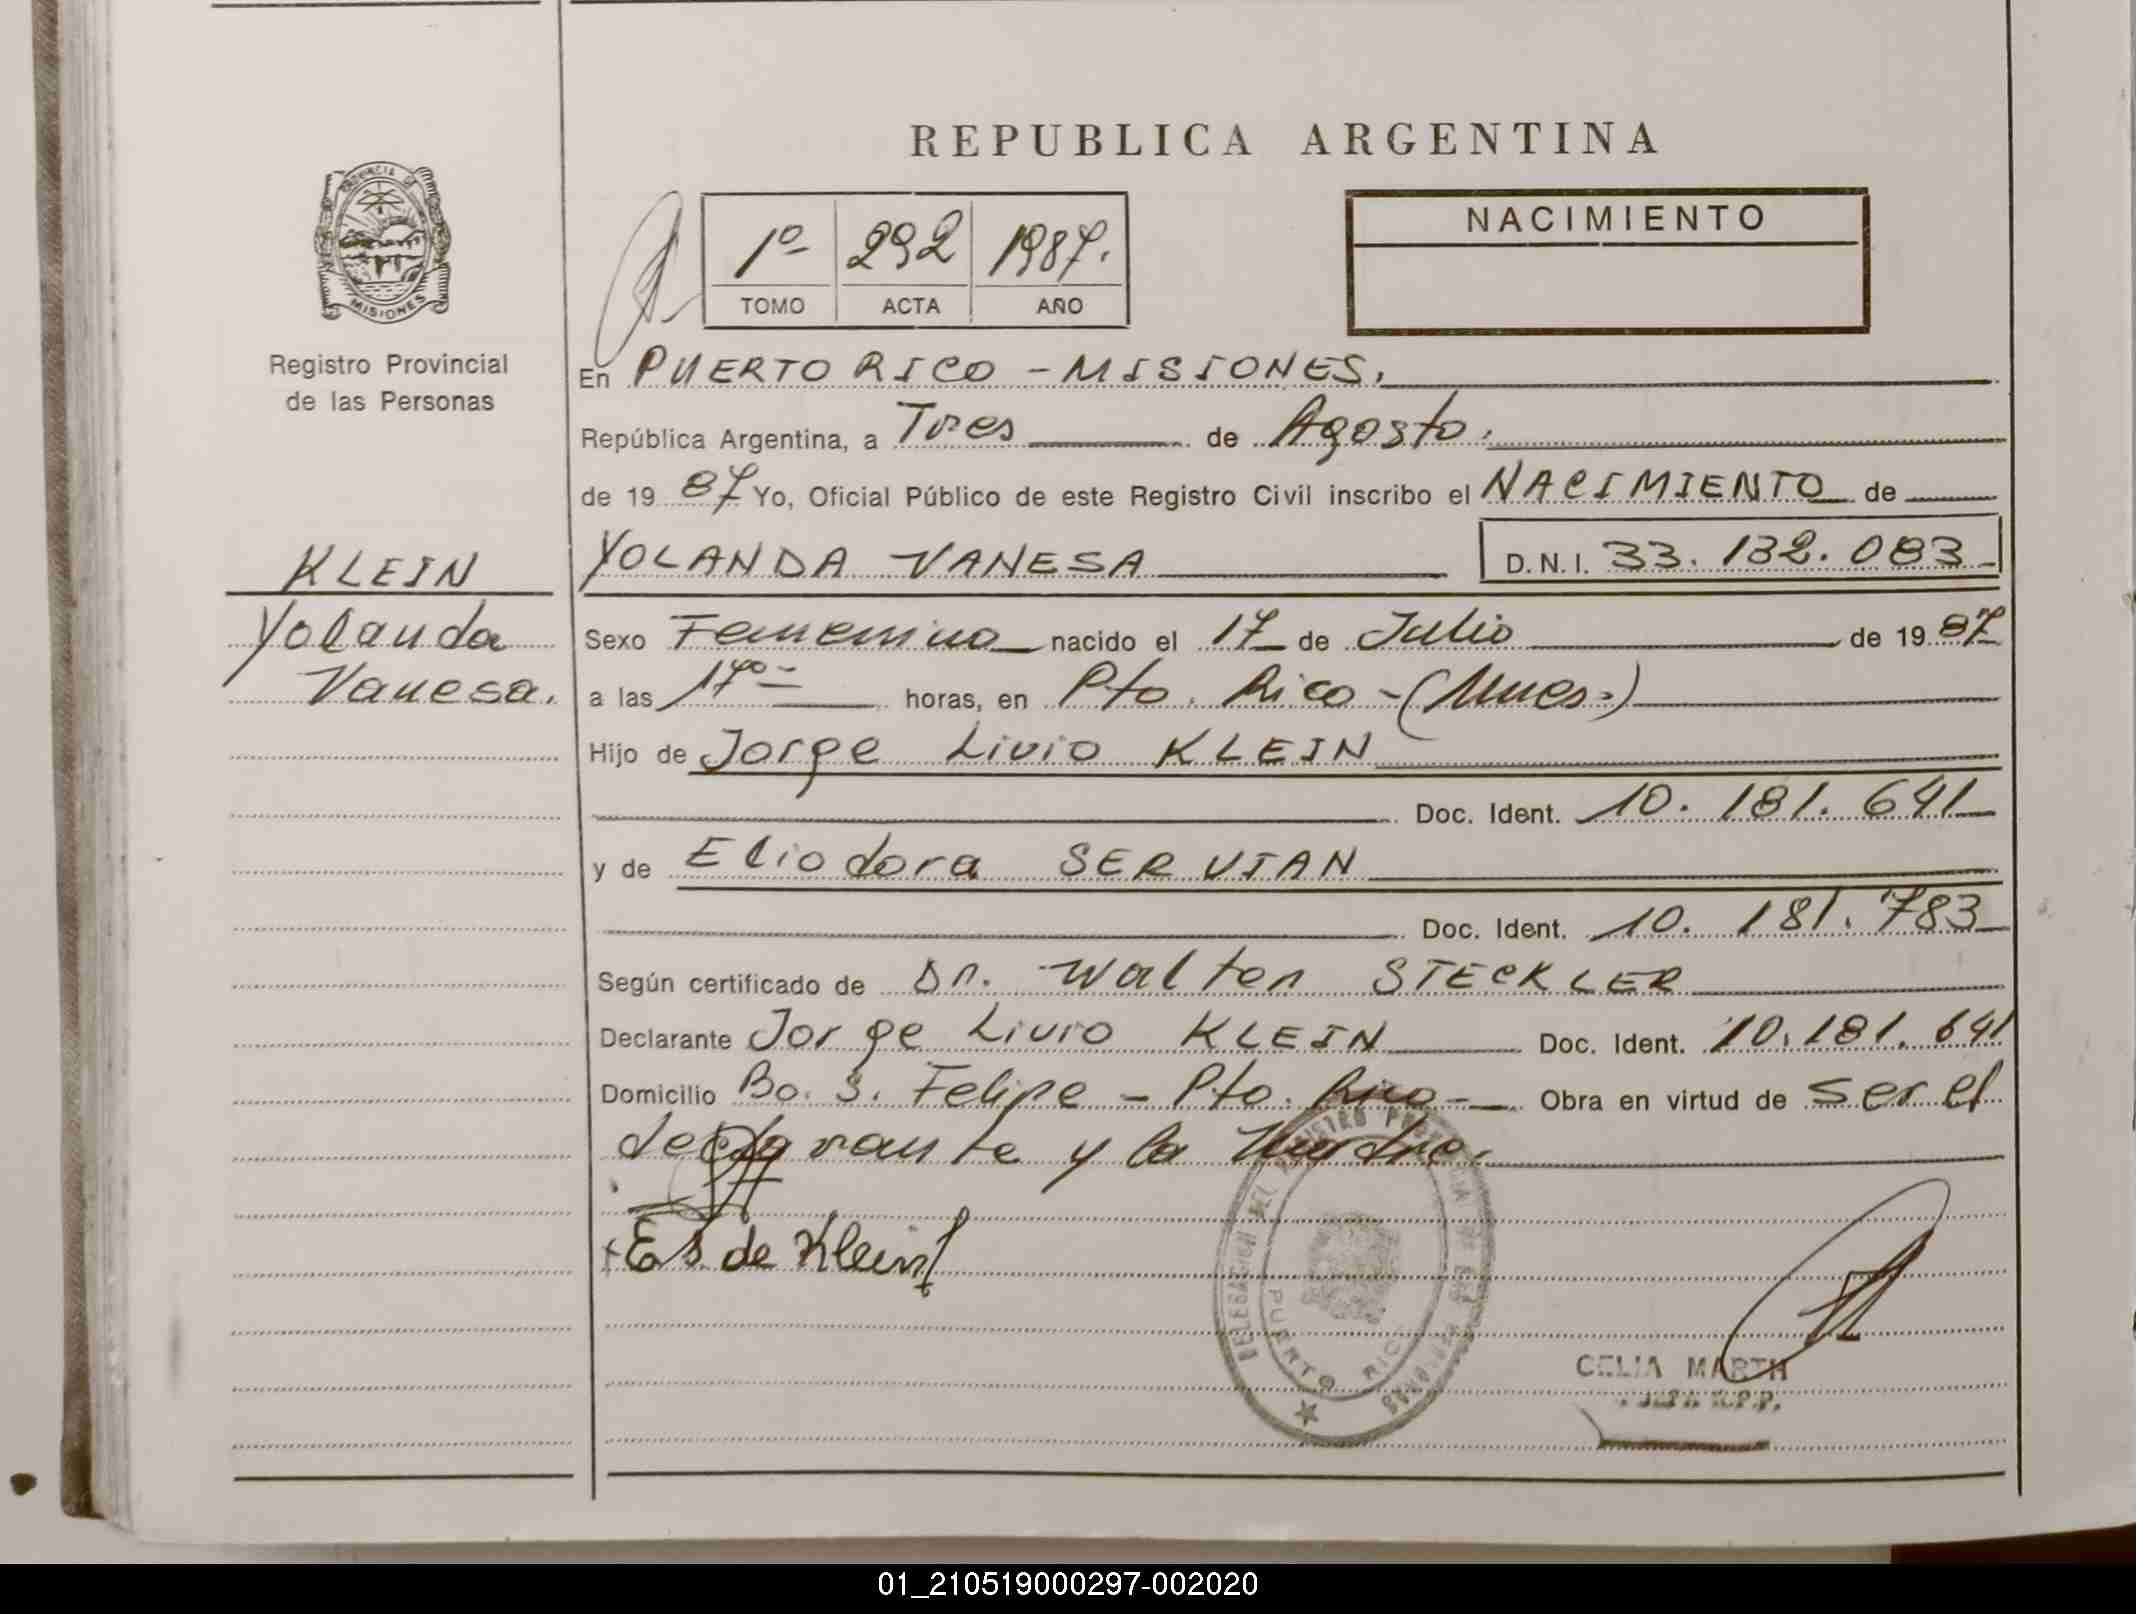 REPUBLICA ARGENTINA
PROVINCIA DE
MISIONES
Registro Provincial
de las Personas
1º 292 1987.
TOMO ACTA AÑO
NACIMIENTO
En PUERTO RICO - MISIONES.
República Argentina, a Tres de Agosto.
de 19 87 Yo, Oficial Público de este Registro Civil inscribo el NACIMIENTO de
KLEIN
Yolanda
Vanesa.
YOLANDA VANESA D.N.I. 33.132.083
Sexo Femenino nacido el 17 de Julio de 19 87
a las 17º horas, en Pto. Rico - (Mnes.)
Hijo de Jorge Livio KLEIN
Doc. Ident. 10.181.641
y de Eliodora SERVIAN
Doc. Ident. 10.181.783
Según certificado de Dr. Walter STECKLER
Declarante Jorge Livio KLEIN Doc. Ident. 10.181.641
Domicilio Bo. S. Felipe - Pto. Rico - Obra en virtud de ser el
declarante y la Madre.
E S. de Klein
DELEGACION DEL REGISTRO PROVINCIAL DE LAS PERSONAS
PUERTO RICO
CELIA MARTH
JEFA R.P.P.
01_210519000297-002020